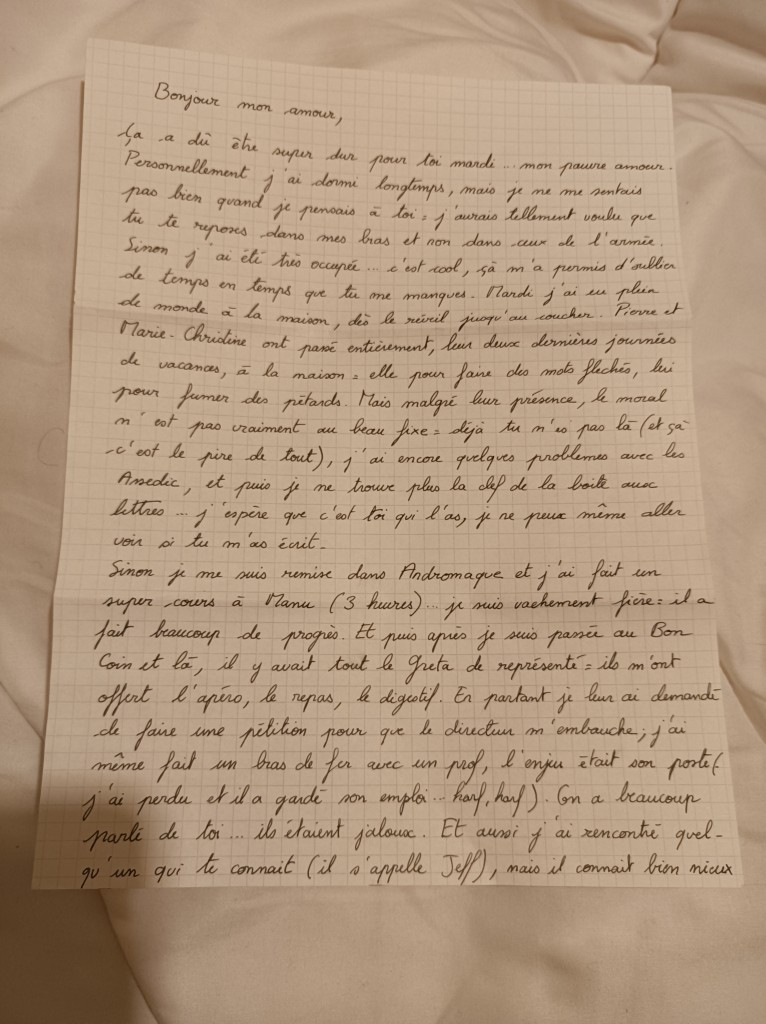 Bonjour mon amour,
Ça a dû être super dur pour toi mardi... mon pauvre amour.
Personnellement j'ai dormi longtemps, mais je ne me sentais
pas bien quand je pensais à toi = j'aurais tellement voulu que
tu te reposes dans mes bras et non dans ceux de l'armée.
Sinon j'ai été très occupée... c'est cool, çà m'a permis d'oublier
de temps en temps que tu me manques. Mardi j'ai eu plein
de monde à la maison, dès le réveil jusqu'au coucher. Pierre et
Marie-Christine ont passé entièrement, leur deux dernières journées
de vacances, à la maison = elle pour faire des mots flechés, lui
pour fumer des pétards. Mais malgré leur présence, le moral
n'est pas vraiment au beau fixe = déjà tu n'es pas là (et çà
c'est le pire de tout), j'ai encore quelques problemes avec les
Assedic, et puis je ne trouve plus la clef de la boite aux
lettres... j'espère que c'est toi qui l'as, je ne peux même aller
voir si tu m'as écrit.
Sinon je me suis remise dans Andromaque et j'ai fait un
super cours à Manu (3 heures)... je suis vachement fière = il a
fait beaucoup de progrès. Et puis après je suis passée au Bon
Coin et là, il y avait tout le Greta de représenté = ils m'ont
offert l'apéro, le repas, le digestif. En partant je leur ai demandé
de faire une pétition pour que le directeur m'embauche; j'ai
même fait un bras de fer avec un prof, l'enjeu était son poste (
j'ai perdu et il a gardé son emploi... harf, harf). On a beaucoup
parlé de toi... ils étaient jaloux. Et aussi j'ai rencontré quel-
qu'un qui te connait (il s'appelle Jeff), mais il connait bien mieux